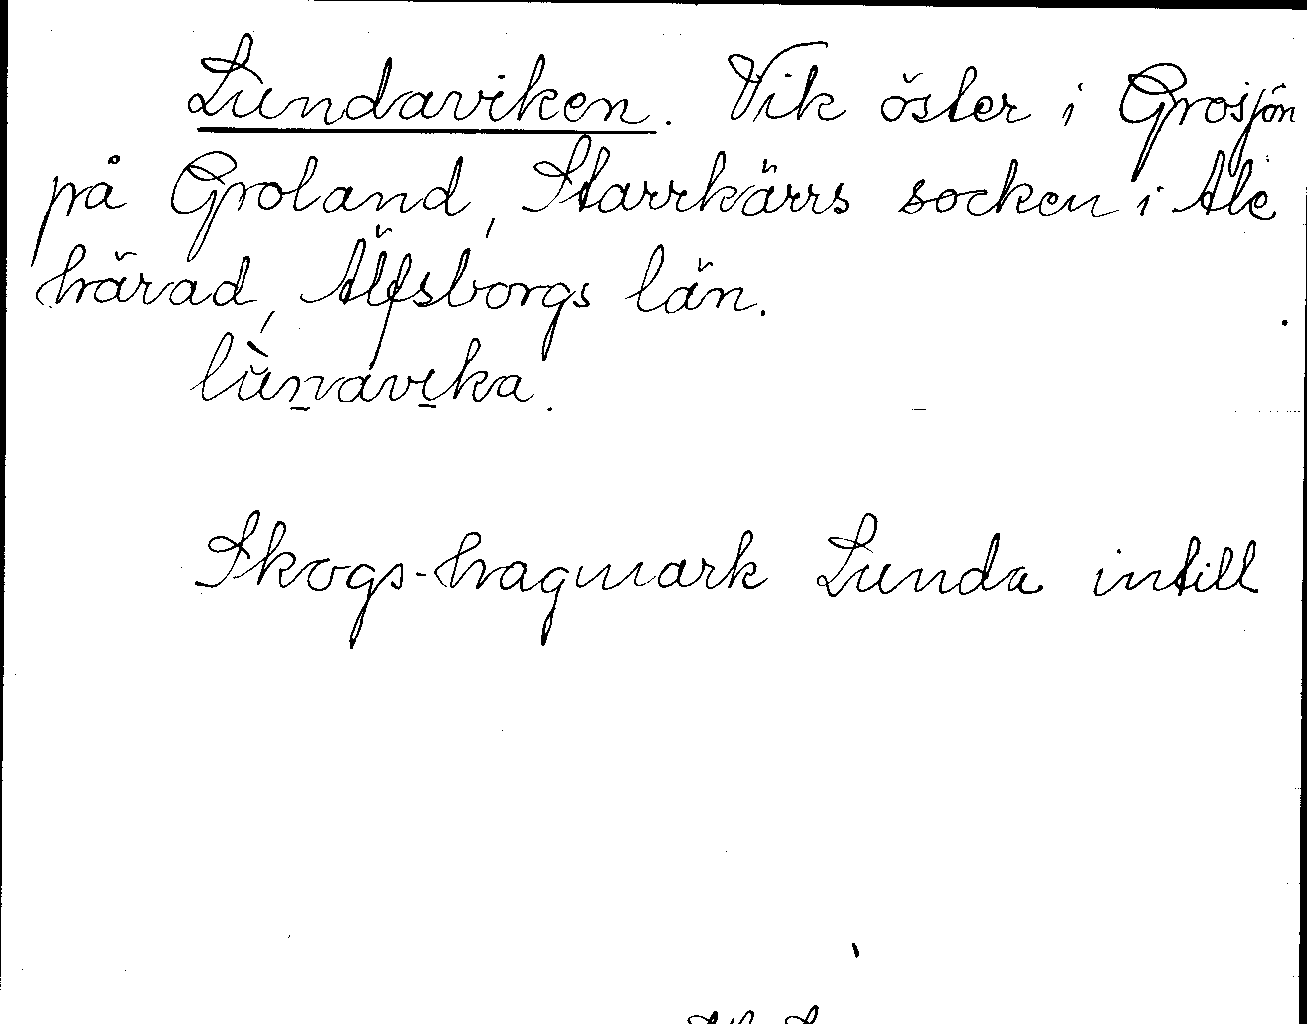 Lundaviken. Vik öster i Grosjön
på Groland, Starrkärrs socken i Ale
härad, Älfsborgs län.
lùn̲avi̲ka.
Skogs-hagmark Lunda intill